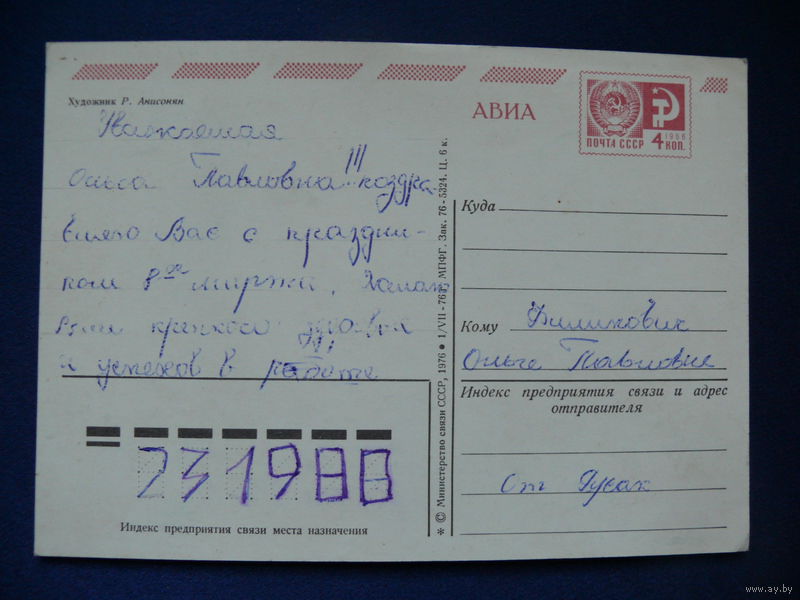 Художник Р. Анисонян
АВИА
ПОЧТА СССР
1966
4 КОП.
Уважаемая
Ольга Павловна!!! поздра
вляю Вас с праздни-
ком 8го марта. Желаю
Вам крепкого здоровья
и успехов в работе
Куда
Кому Филипович
Ольге Павловне
Индекс предприятия связи и адрес
отправителя
От Гусак
231988
Индекс предприятия связи места назначения
* © Министерство связи СССР, 1976 ● 1/VII-76г. МПФГ. Зак. 76-5324. Ц. 6 к.
www.ay.by